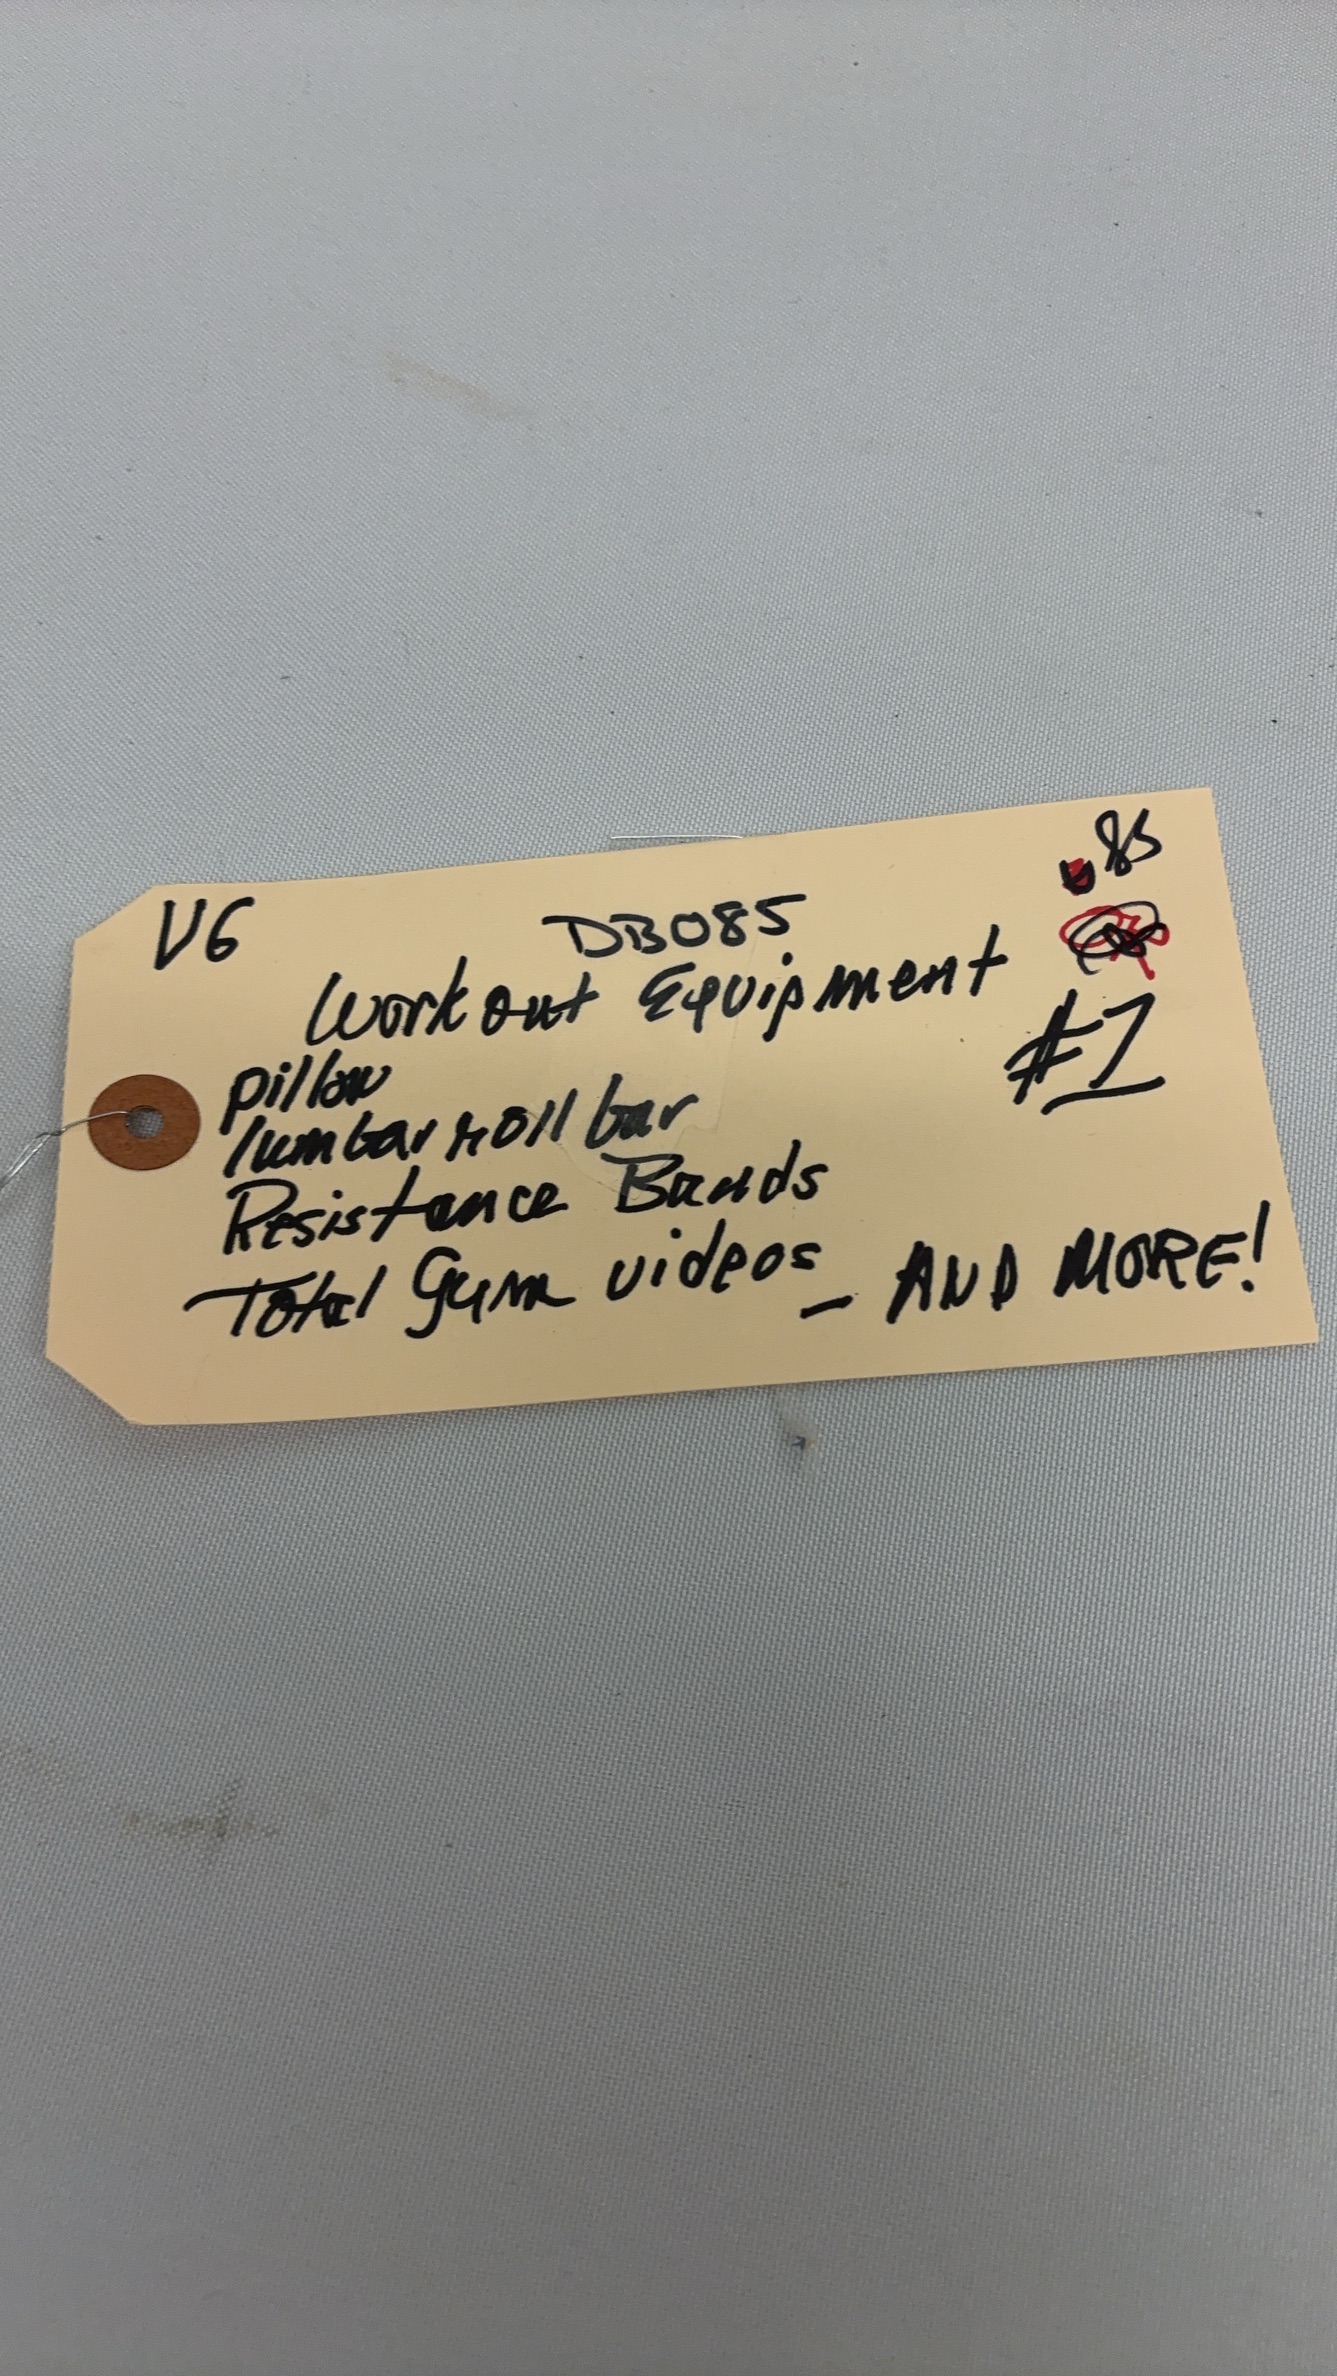 85
V6 DB085
Workout Equipment
#1
pillow
lumbar roll bar
Resistance Bands
Total Gym videos - AND MORE!